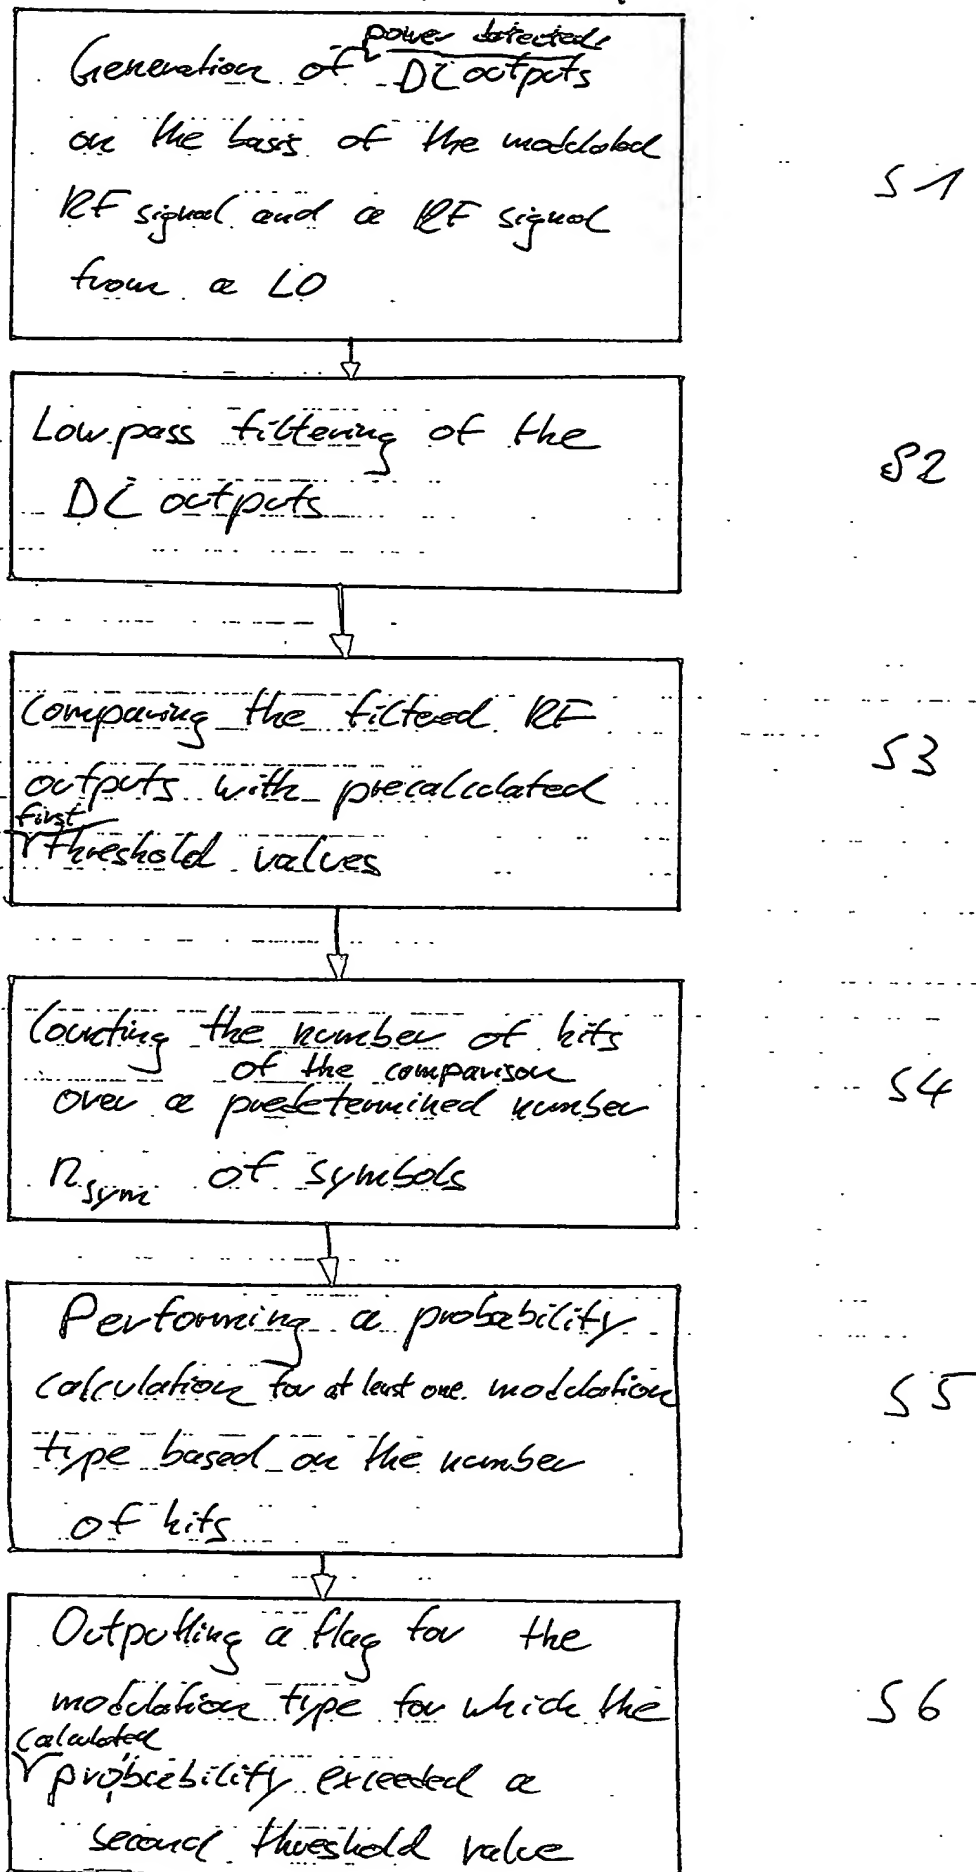 power detected
Generation of DC outputs
on the basis of the modulated
RF signal and a RF signal
from a LO
S1
Low pass filtering of the
DC outputs
S2
Comparing the filtered RF
outputs with precalculated
first
threshold values
S3
Counting the number of hits
of the comparison
over a predetermined number
nsym of symbols
S4
Performing a probability
calculation for at least one modulation
type based on the number
of hits
S5
Outputting a flag for the
modulation type for which the
calculated
probability exceeded a
second threshold value
S6